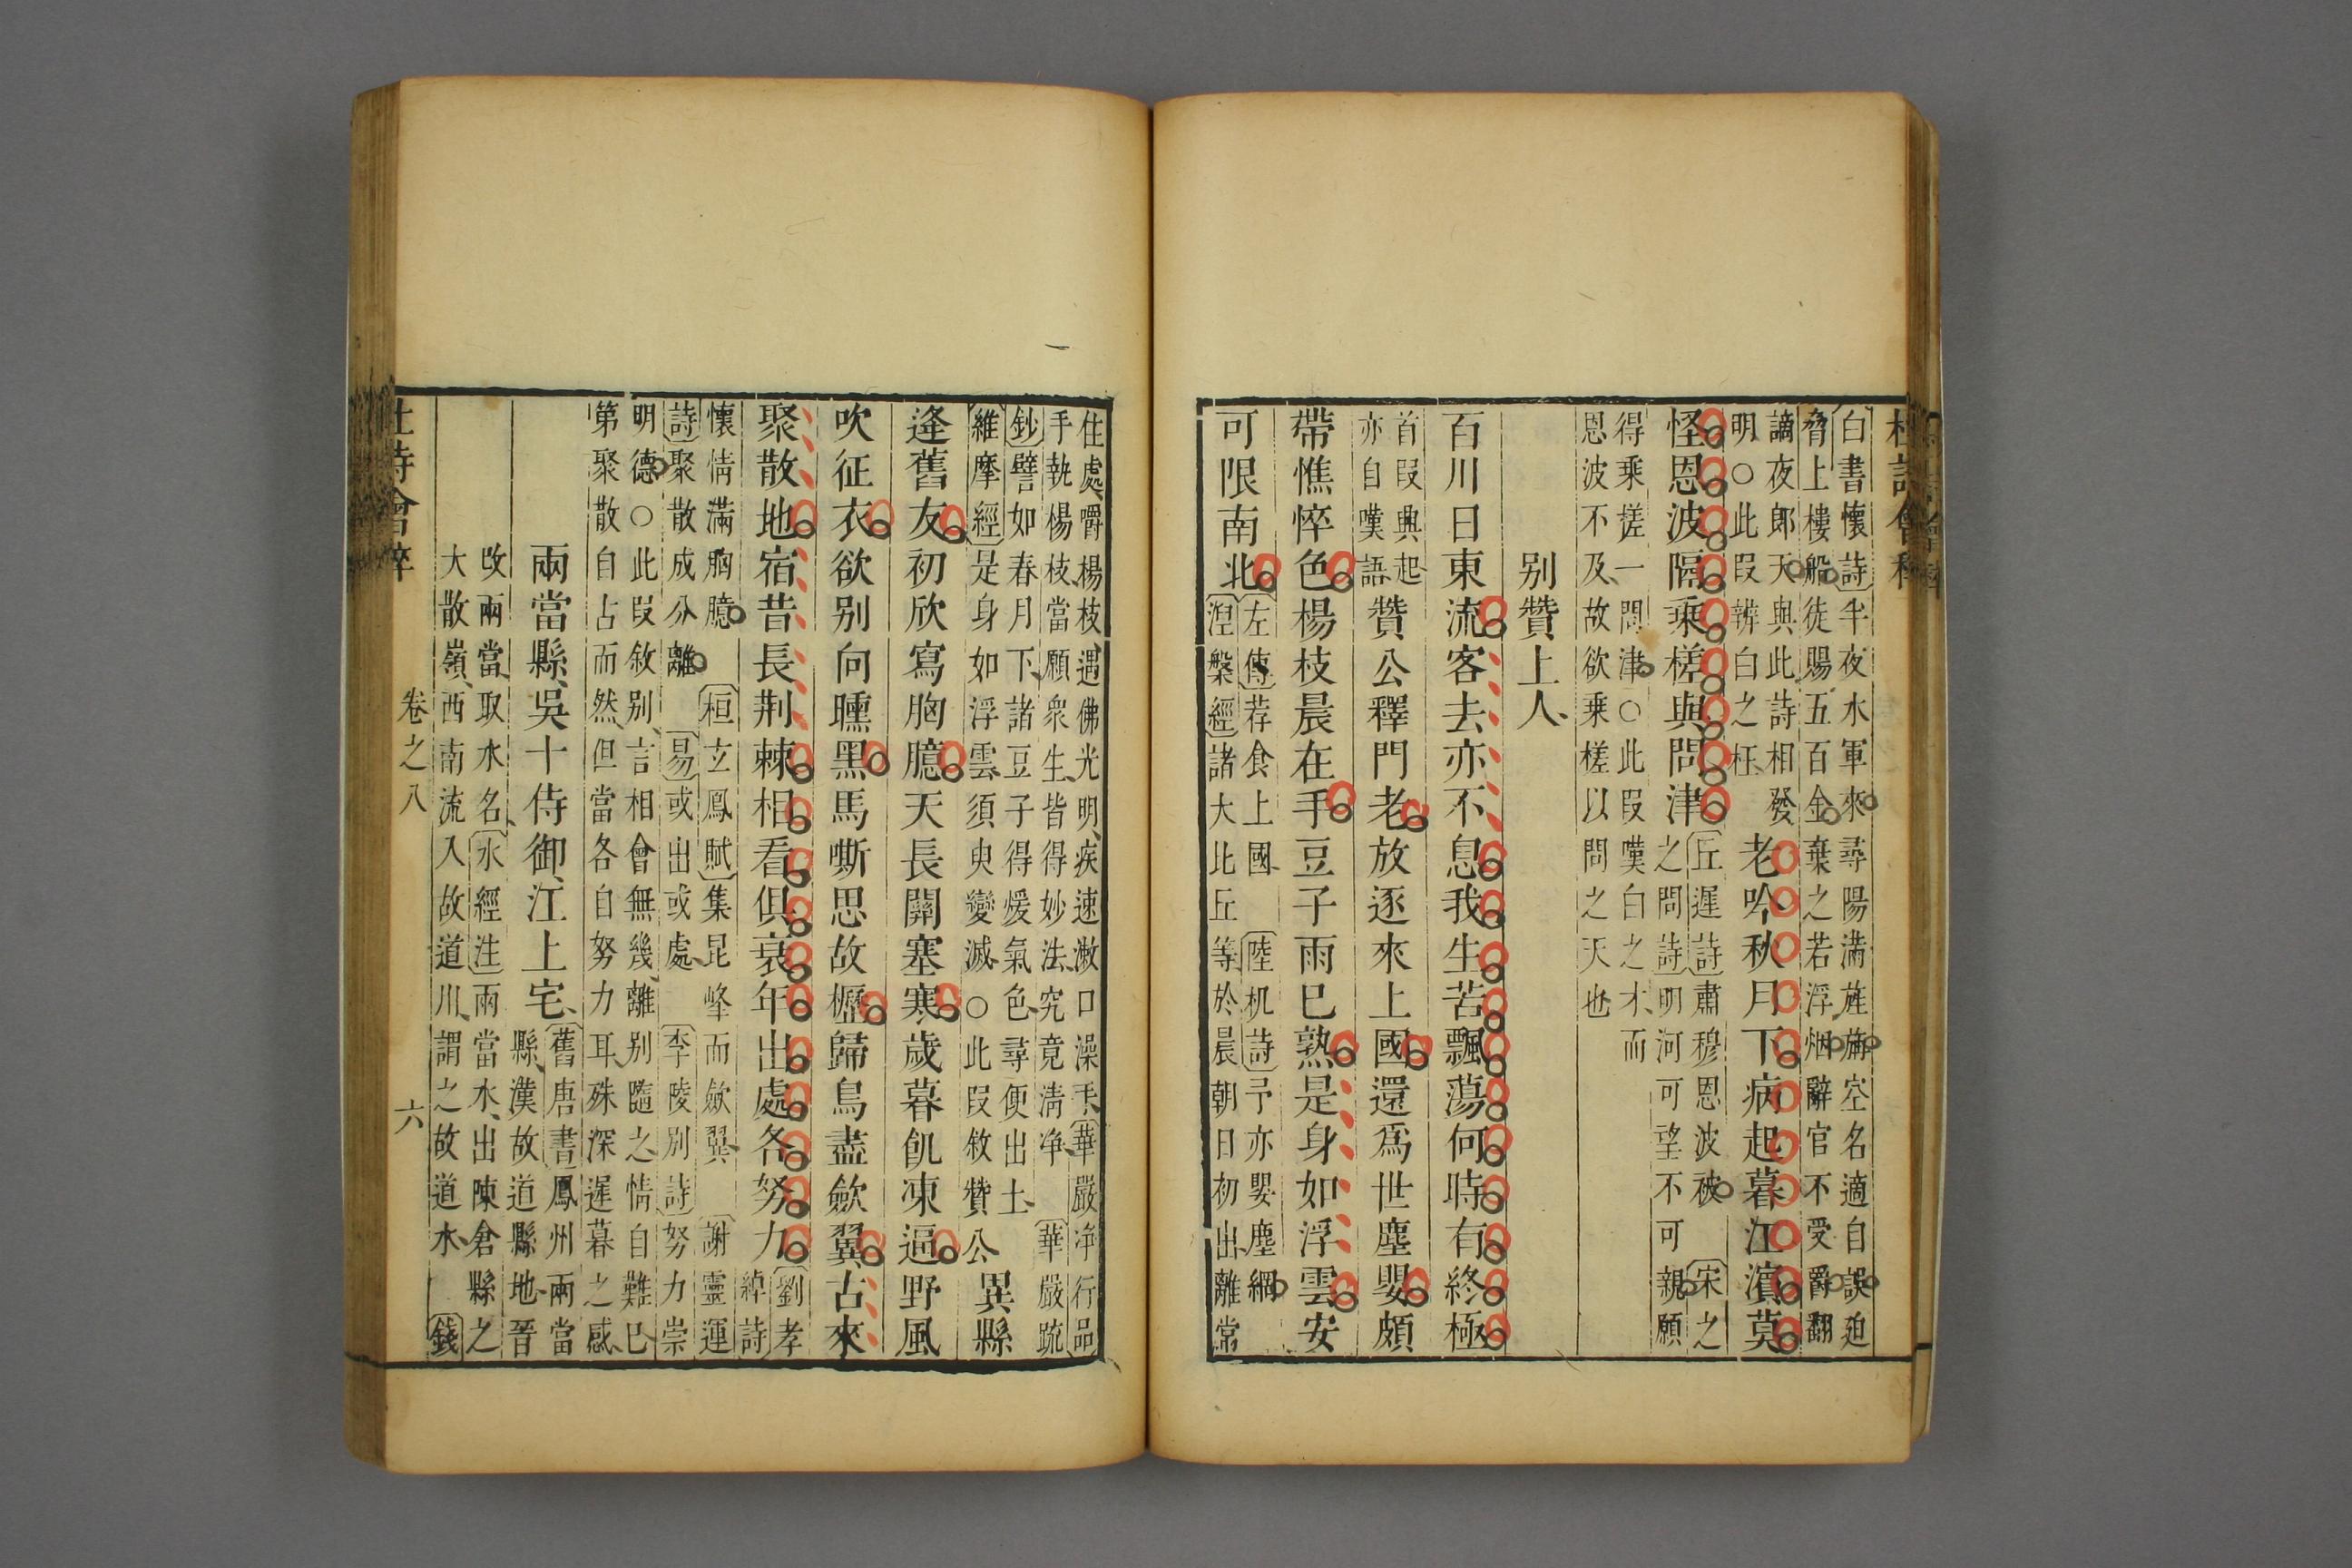 杜詩會粹
白書懷詩半夜水軍來尋陽滿旌旃空名適自誤迫
脅上樓船徒賜五百金棄之若浮烟辭官不受爵翻
謫夜郎天與此詩相發
明○此叚辨白之枉
老吟秋月下病起暮江濱莫
怪恩波隔乘槎與問津
丘遲詩肅穆恩波被 宋之
之問詩明河可望不可親願
得乘槎一問津○此叚嘆白之才而
恩波不及故欲乘槎以問之天也
别贊上人
百川日東流客去亦不息我生苦飄蕩何時有終極
首叚興起
亦自嘆語
贊公釋門老放逐來上國還爲世塵嬰頗
帶憔悴色楊枝晨在手豆子雨已熟是身如浮雲安
可限南北
左傳荐食上國 陸机詩予亦嬰塵綱
湼槃經諸大比丘等於晨朝日初出離常
住處嚼楊枝遇佛光明疾速漱口澡手華嚴浄行品
手執楊枝當願衆生皆得妙法究竟清浄 華嚴䟽
鈔譬如春月下諸豆子得煖氣色尋便出土
維摩經是身如浮雲須臾變滅○此叚敘贊公
異縣
逢舊友初欣寫胸臆天長關塞寒歲暮飢凍逼野風
吹征衣欲别向曛黑馬嘶思故櫪歸鳥盡歛翼古來
聚散地宿昔長荆棘相看俱衰年出處各努力
劉孝
綽詩
懷情滿胸臆 桓玄鳳賦集昆峰而歛翼 謝靈運
詩聚散成分離 易或出或處 李陵别詩努力崇
明德○此叚敘别言相會無幾離别隨之情自難已
第聚散自占而然但當各自努力耳殊深遲暮之感
兩當縣吳十侍御江上宅
舊唐書鳳州兩當
縣漢故道縣地晉
攺兩當取水名水經注兩當水出陳倉縣之
大散嶺西南流入故道川謂之故道水 錢
杜詩會粹
卷之八
六